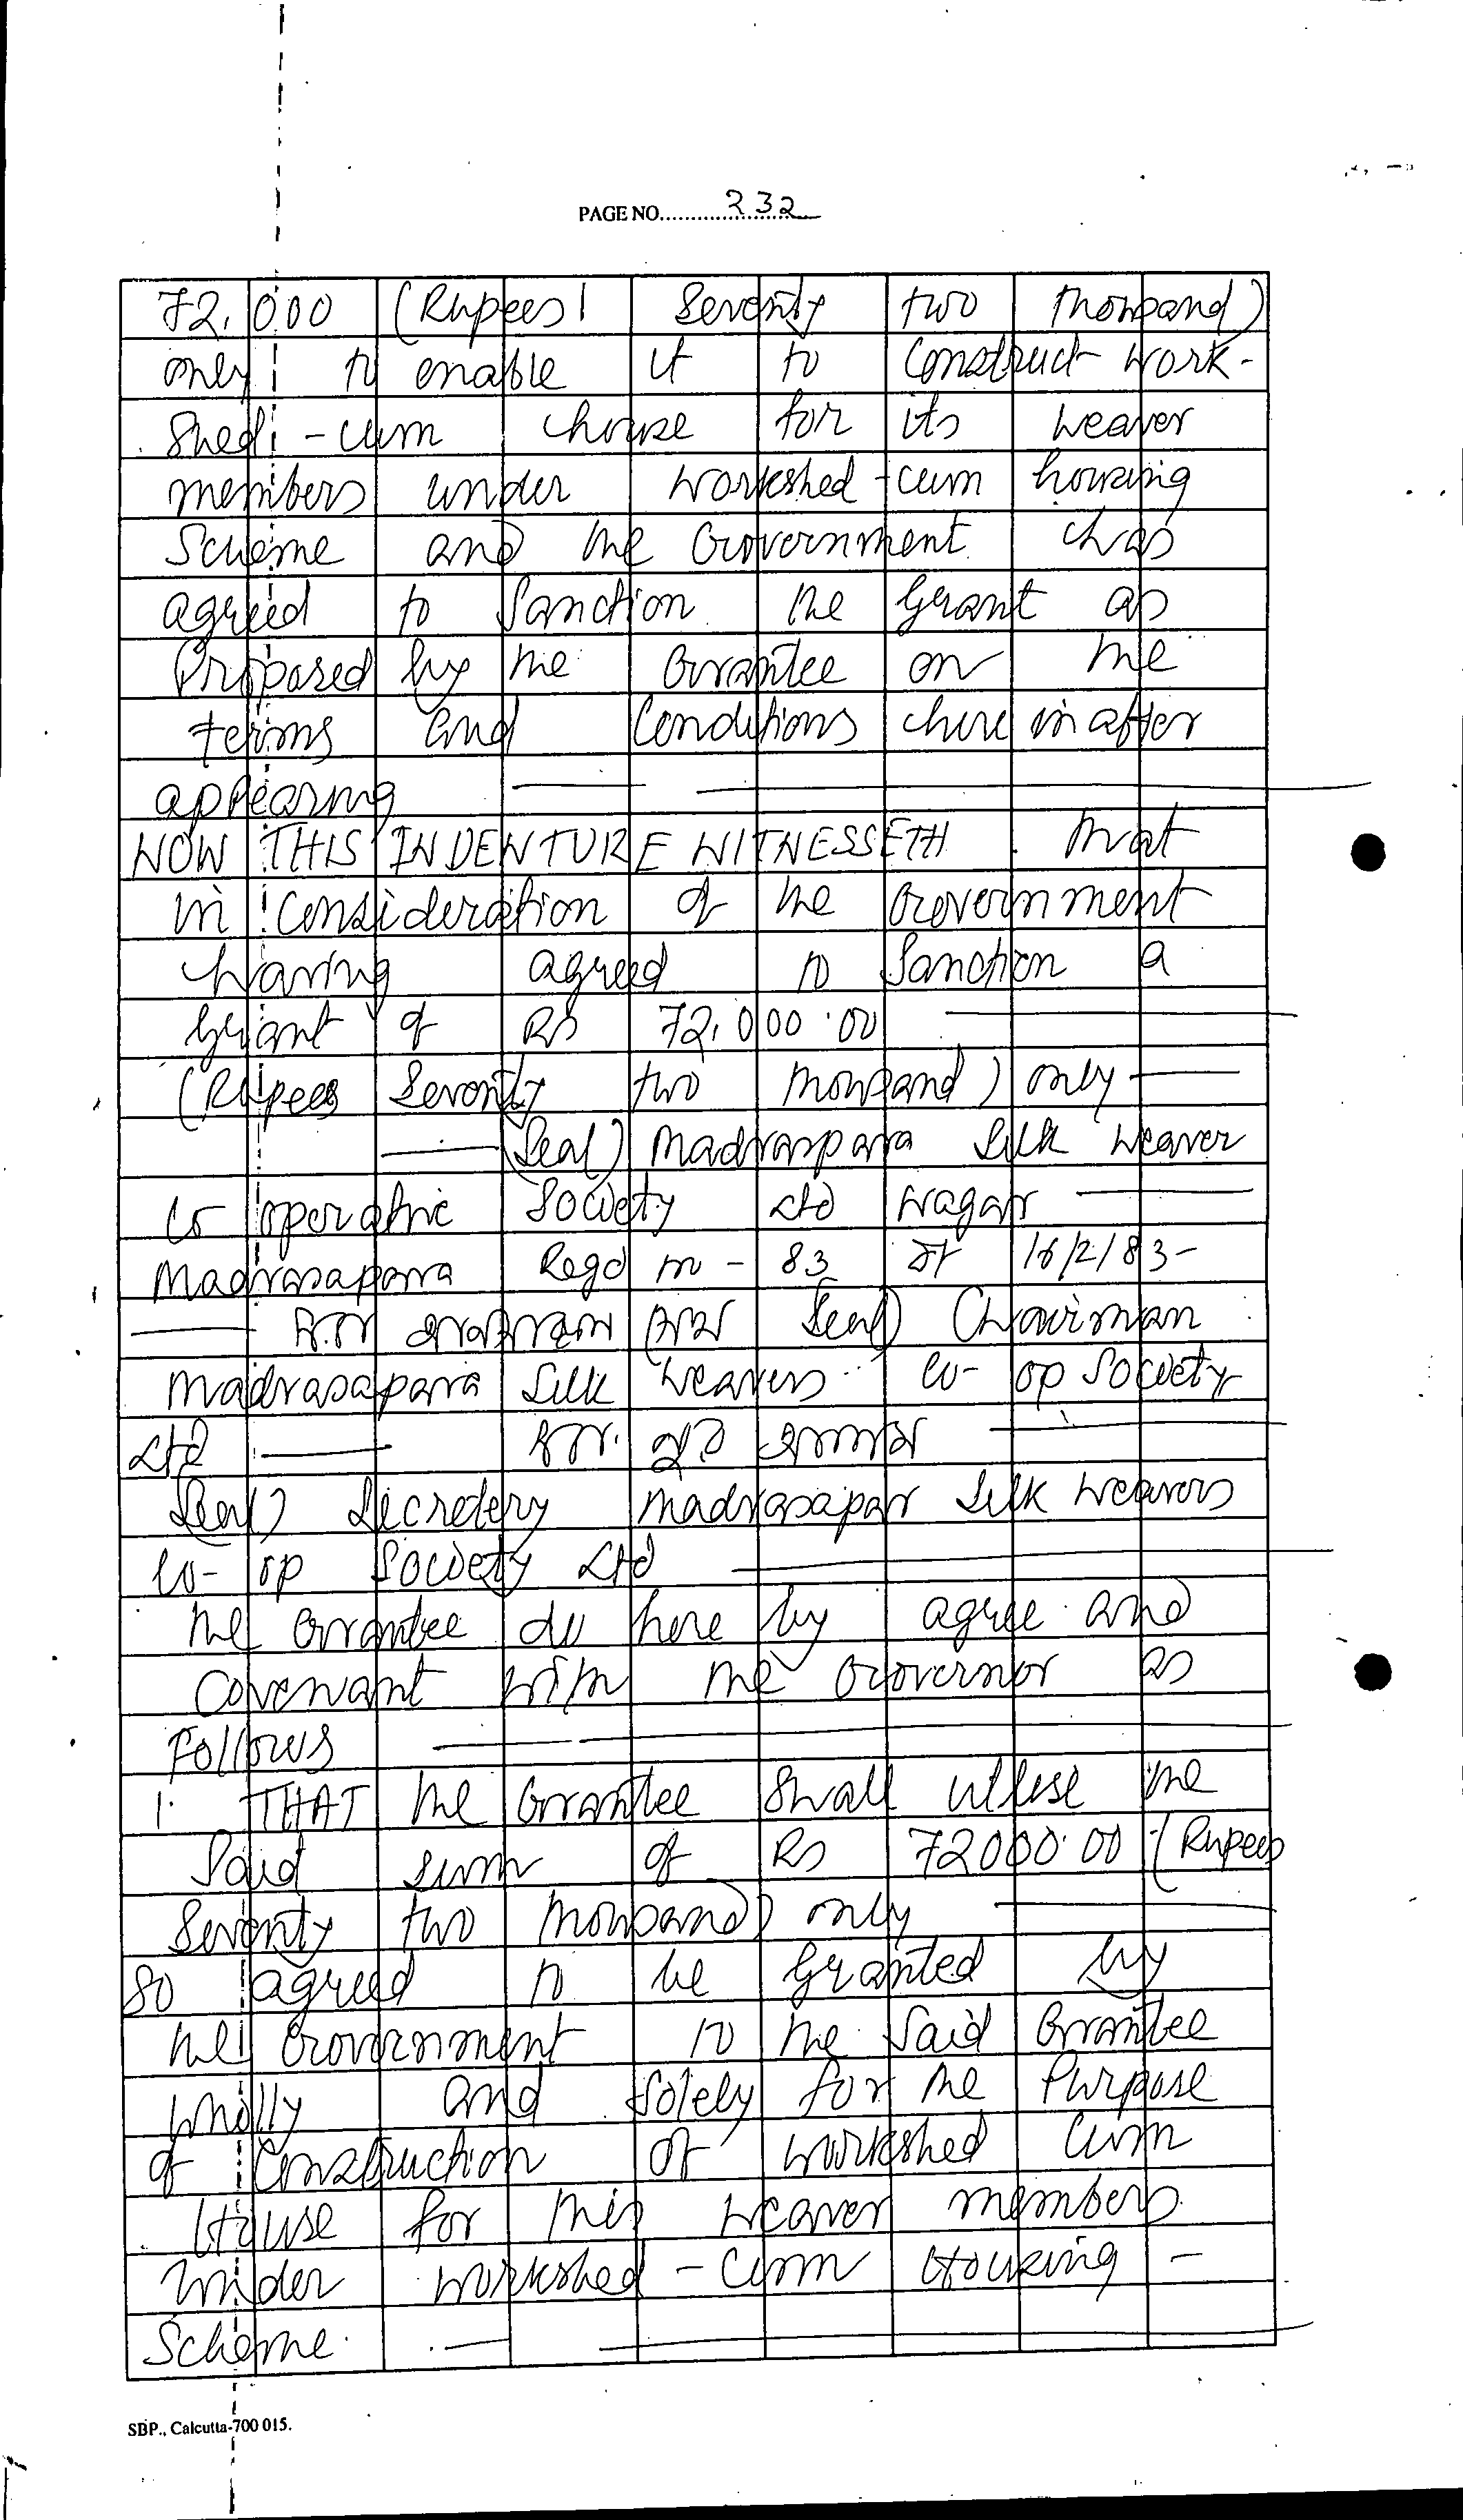 PAGE NO. 232
72,000 (Rupees Seventy two thousand)
only to enable it to construct work-
Shed-cum house for its weaver
members under workshed-cum housing
Scheme and the Government has
agreed to Sanction the Grant as
Proposed by the Grantee on the
terms and Conditions here in after
appearing
NOW THIS INDENTURE WITNESSETH that
in consideration of the Government
having agreed to Sanction a
Grant of Rs 72,000.00
(Rupees Seventy two thousand) only
(Seal) Madraspara Silk Weaver
Co operative Society Ltd
Madrasapara Regd no - 83 dt 16/2/83-
Seal) Chairman
Madrasapara Silk Weavers Co-op Society
Ltd
Seal) Secretery Madrasapar Silk Weavers
Co-op Society Ltd
the Grantee do here by agree and
Covenant with the Governor as
Follows
1. THAT the Grantee Shall utilise the
Said sum of Rs 72000.00 (Rupees
Seventy two thousand) only
So agreed to be Granted by
the Government to the Said Grantee
wholly and Solely for the Purpose
of Construction of workshed Cum
House for this Weaver members
Under workshed-Cum Housing -
Scheme.
SBP., Calcutta-700 015.